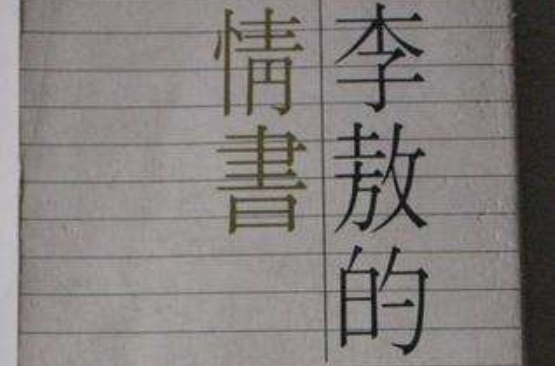 李敖的
情書